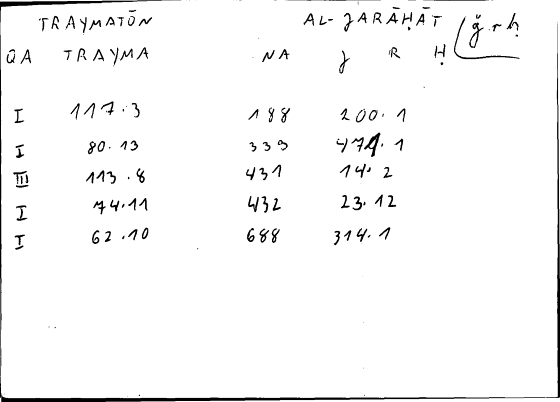 TRAYMATŌN AL-JARĀḤĀT (ǧ.r.ḥ
QA TRAYMA NA J R Ḥ
I 117.3 188 200.1
I 80.13 339 471.1
III 113.8 431 14.2
I 74.11 432 23.12
I 62.10 688 314.1